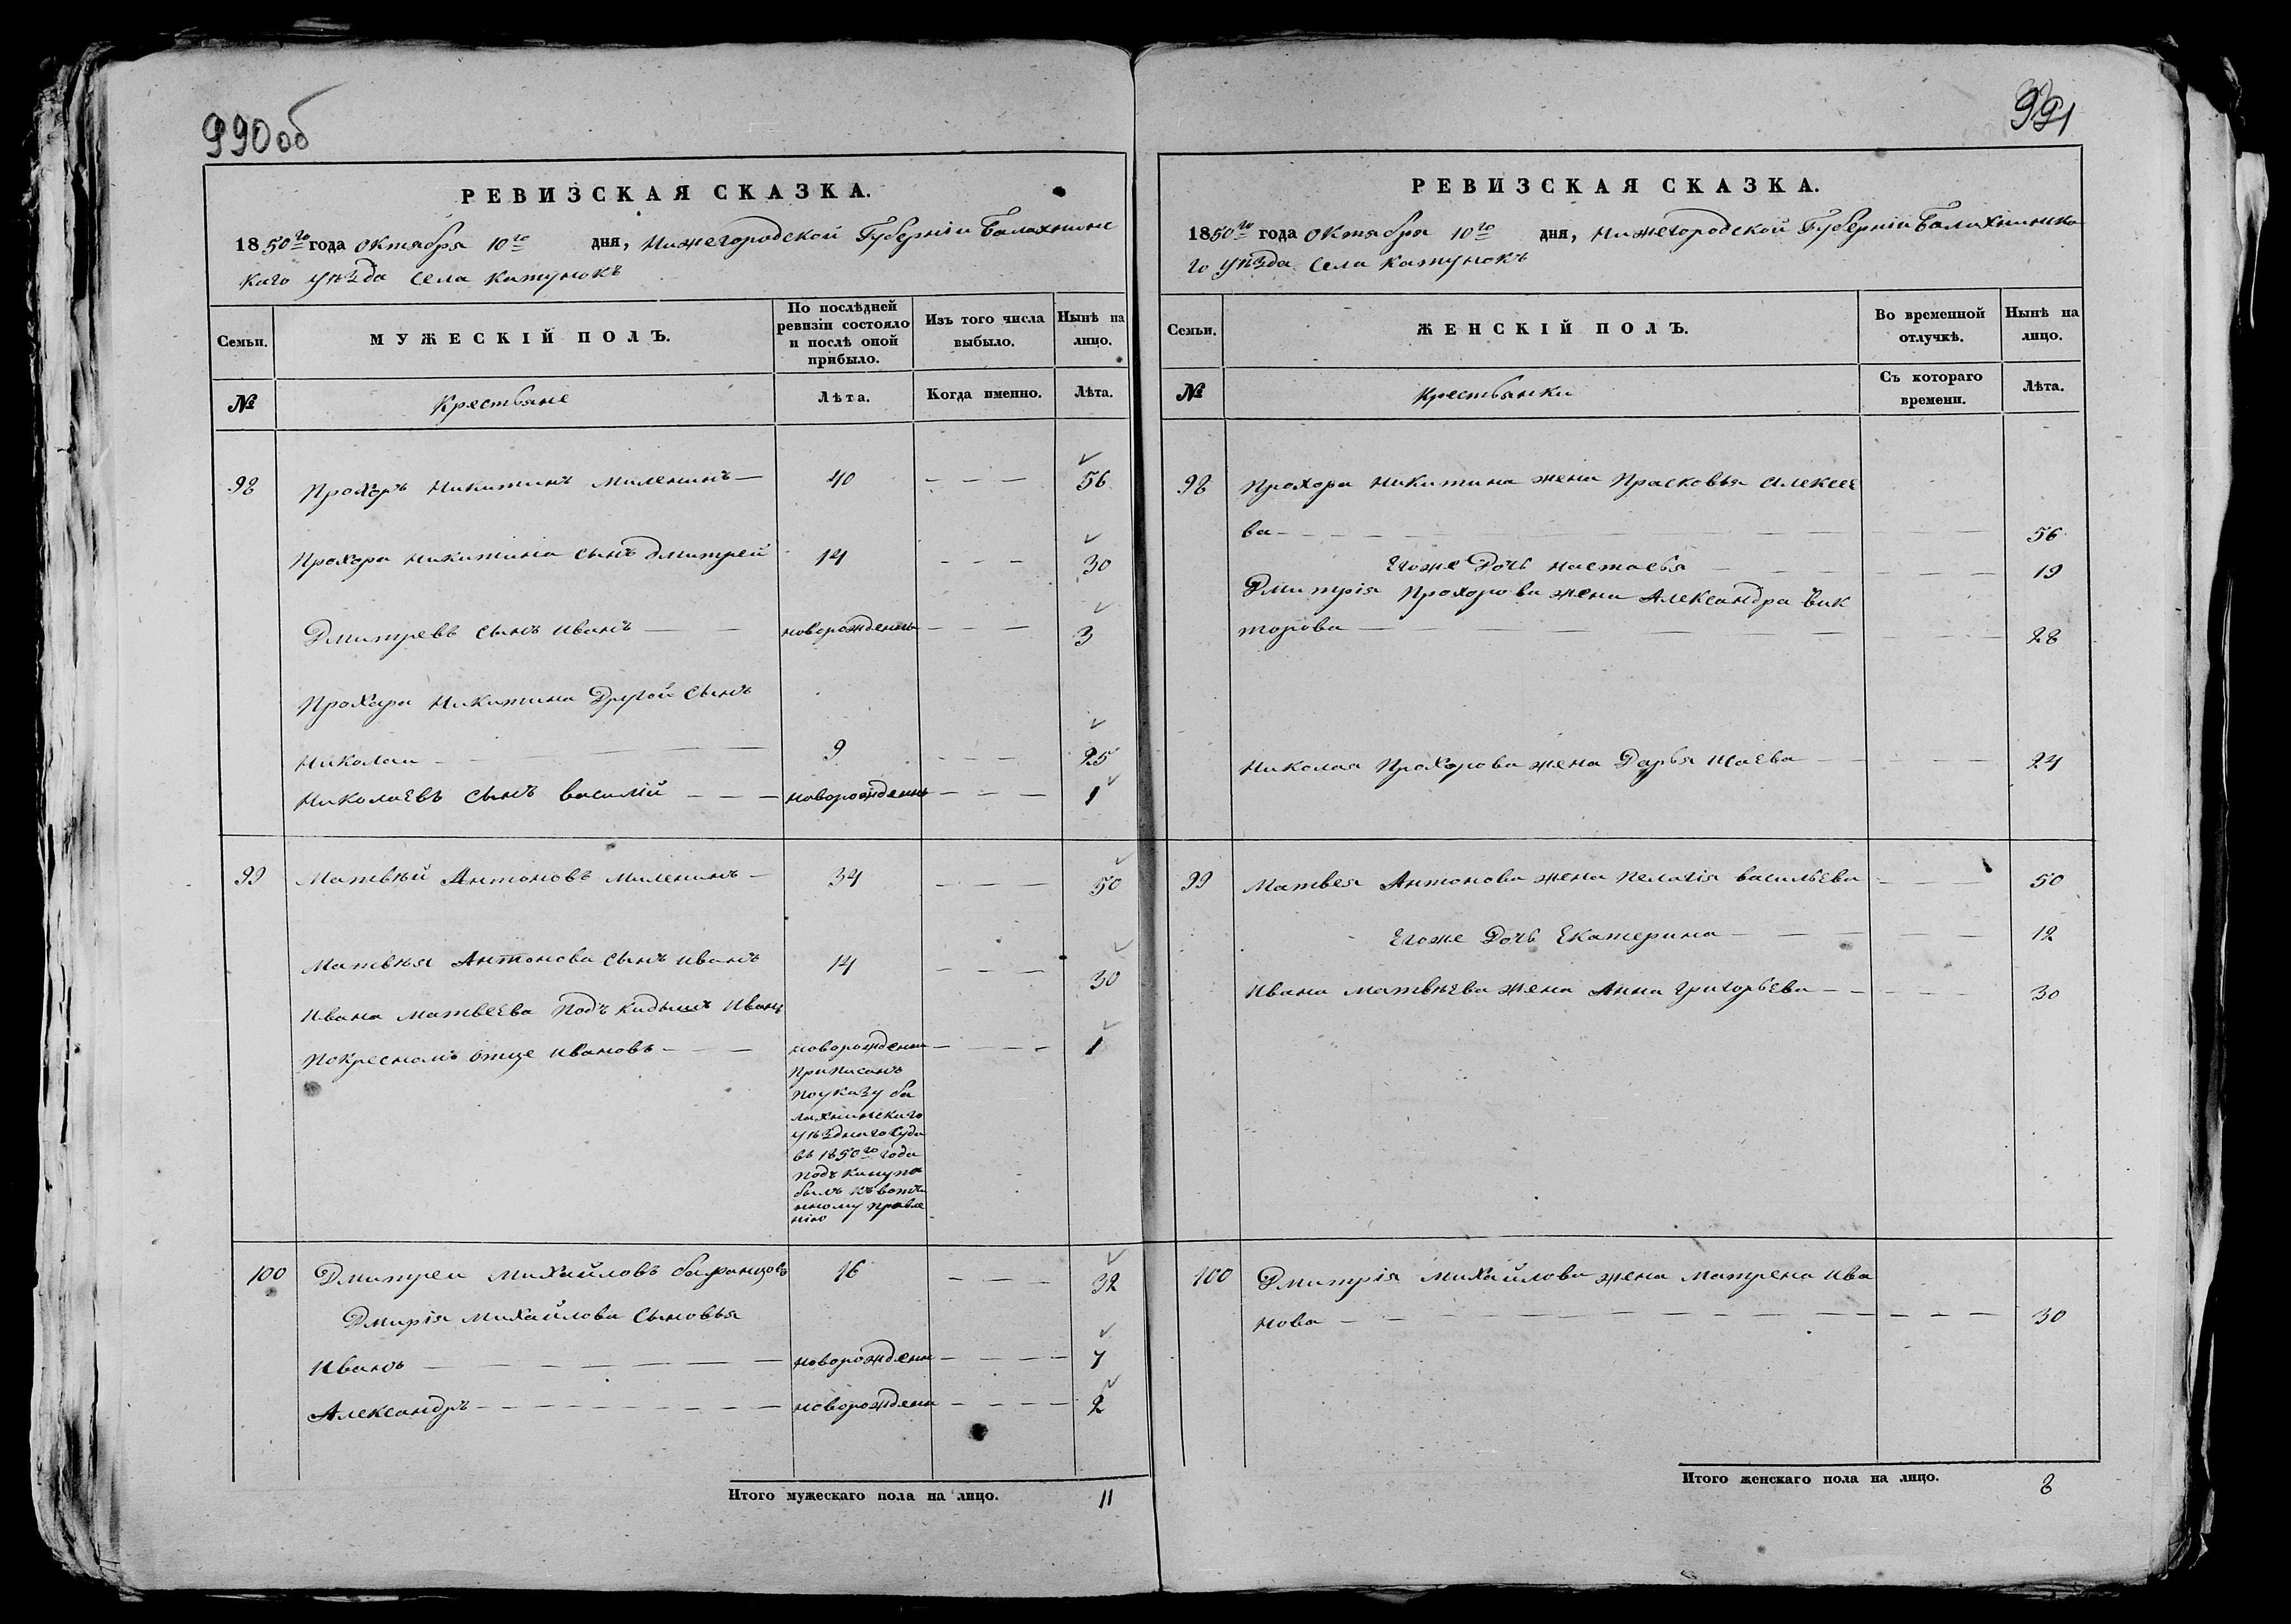 990об
РЕВИЗСКАЯ СКАЗКА.
1850го года октября 10го дня, Нижегородской Губерніи Балахнинс
каго уѣзда села катунокъ
Семьи.
МУЖЕСКІЙ ПОЛЪ.
По послѣдней ревизіи состояло и послѣ оной прибыло.
Изъ того числа выбыло.
Нынѣ на лицо.
№
Крестьяне
Лѣта.
Когда именно.
Лѣта.
98 Прохоръ Никитинъ Миленинъ — 40 — — — 56
Прохора Никитина сынъ Дмитрей 14 — — — 30
Дмитревъ сынъ Иванъ — — новорожденнъ — — — 3
Прохора Никитина Другой сынъ
Николаи — — — — 9 — — — 25
Николаевъ сынъ василій — — — новорожденнъ — — — 1
99 Матвѣй Антоновъ Миленинъ — 34 — — — 50
Матвѣя Антонова сынъ иванъ 14 — — — 30
Ивана Матвеева подъ кидышъ Иванъ
покресномъ отце ивановъ — — новорожденн — — — 1
приписанъ
поуказу ба
лахнинскаго
уѣзднаго суда
въ 1850го года
подъ кинута
былъ къ вотчи
нному правле
нію
100 Дмитреи михайловъ баранцовъ 16 — — — 32
Дмирія михайлова сыновья
Иванъ — — — — — — новорожденн — — — — 7
Александръ — — — — — — — — новорожденн — — — — 2
Итого мужескаго пола на лицо. 11
991
РЕВИЗСКАЯ СКАЗКА.
1850го года октября 10го дня, Нижегородской Губерніи Балахнинска
го уѣзда села катунокъ
Семьи.
ЖЕНСКІЙ ПОЛЪ.
Во временной отлучкѣ.
Нынѣ на лицо.
№
Крестьянки
Съ котораго времени.
Лѣта.
98 Прохора никитина жена Прасковья Алексее
ва — — — — — — — — 56
Егоже Дочь настасья — — — — 19
Дмитрія Прохорова жена Александра вик
торова — — — — — — — 28
Николая Прохорова жена Дарья Исаева — — — — 24
99 Матвея Антонова жена пелагія васильева — — — 50
Егоже Дочь Екатерина — — — — — 12
Ивана матвѣева жена Анна григорьева — — — — 30
100 Дмитрія михайлова жена матрена ива
нова — — — — — — — — — — — 30
Итого женскаго пола на лицо. 8